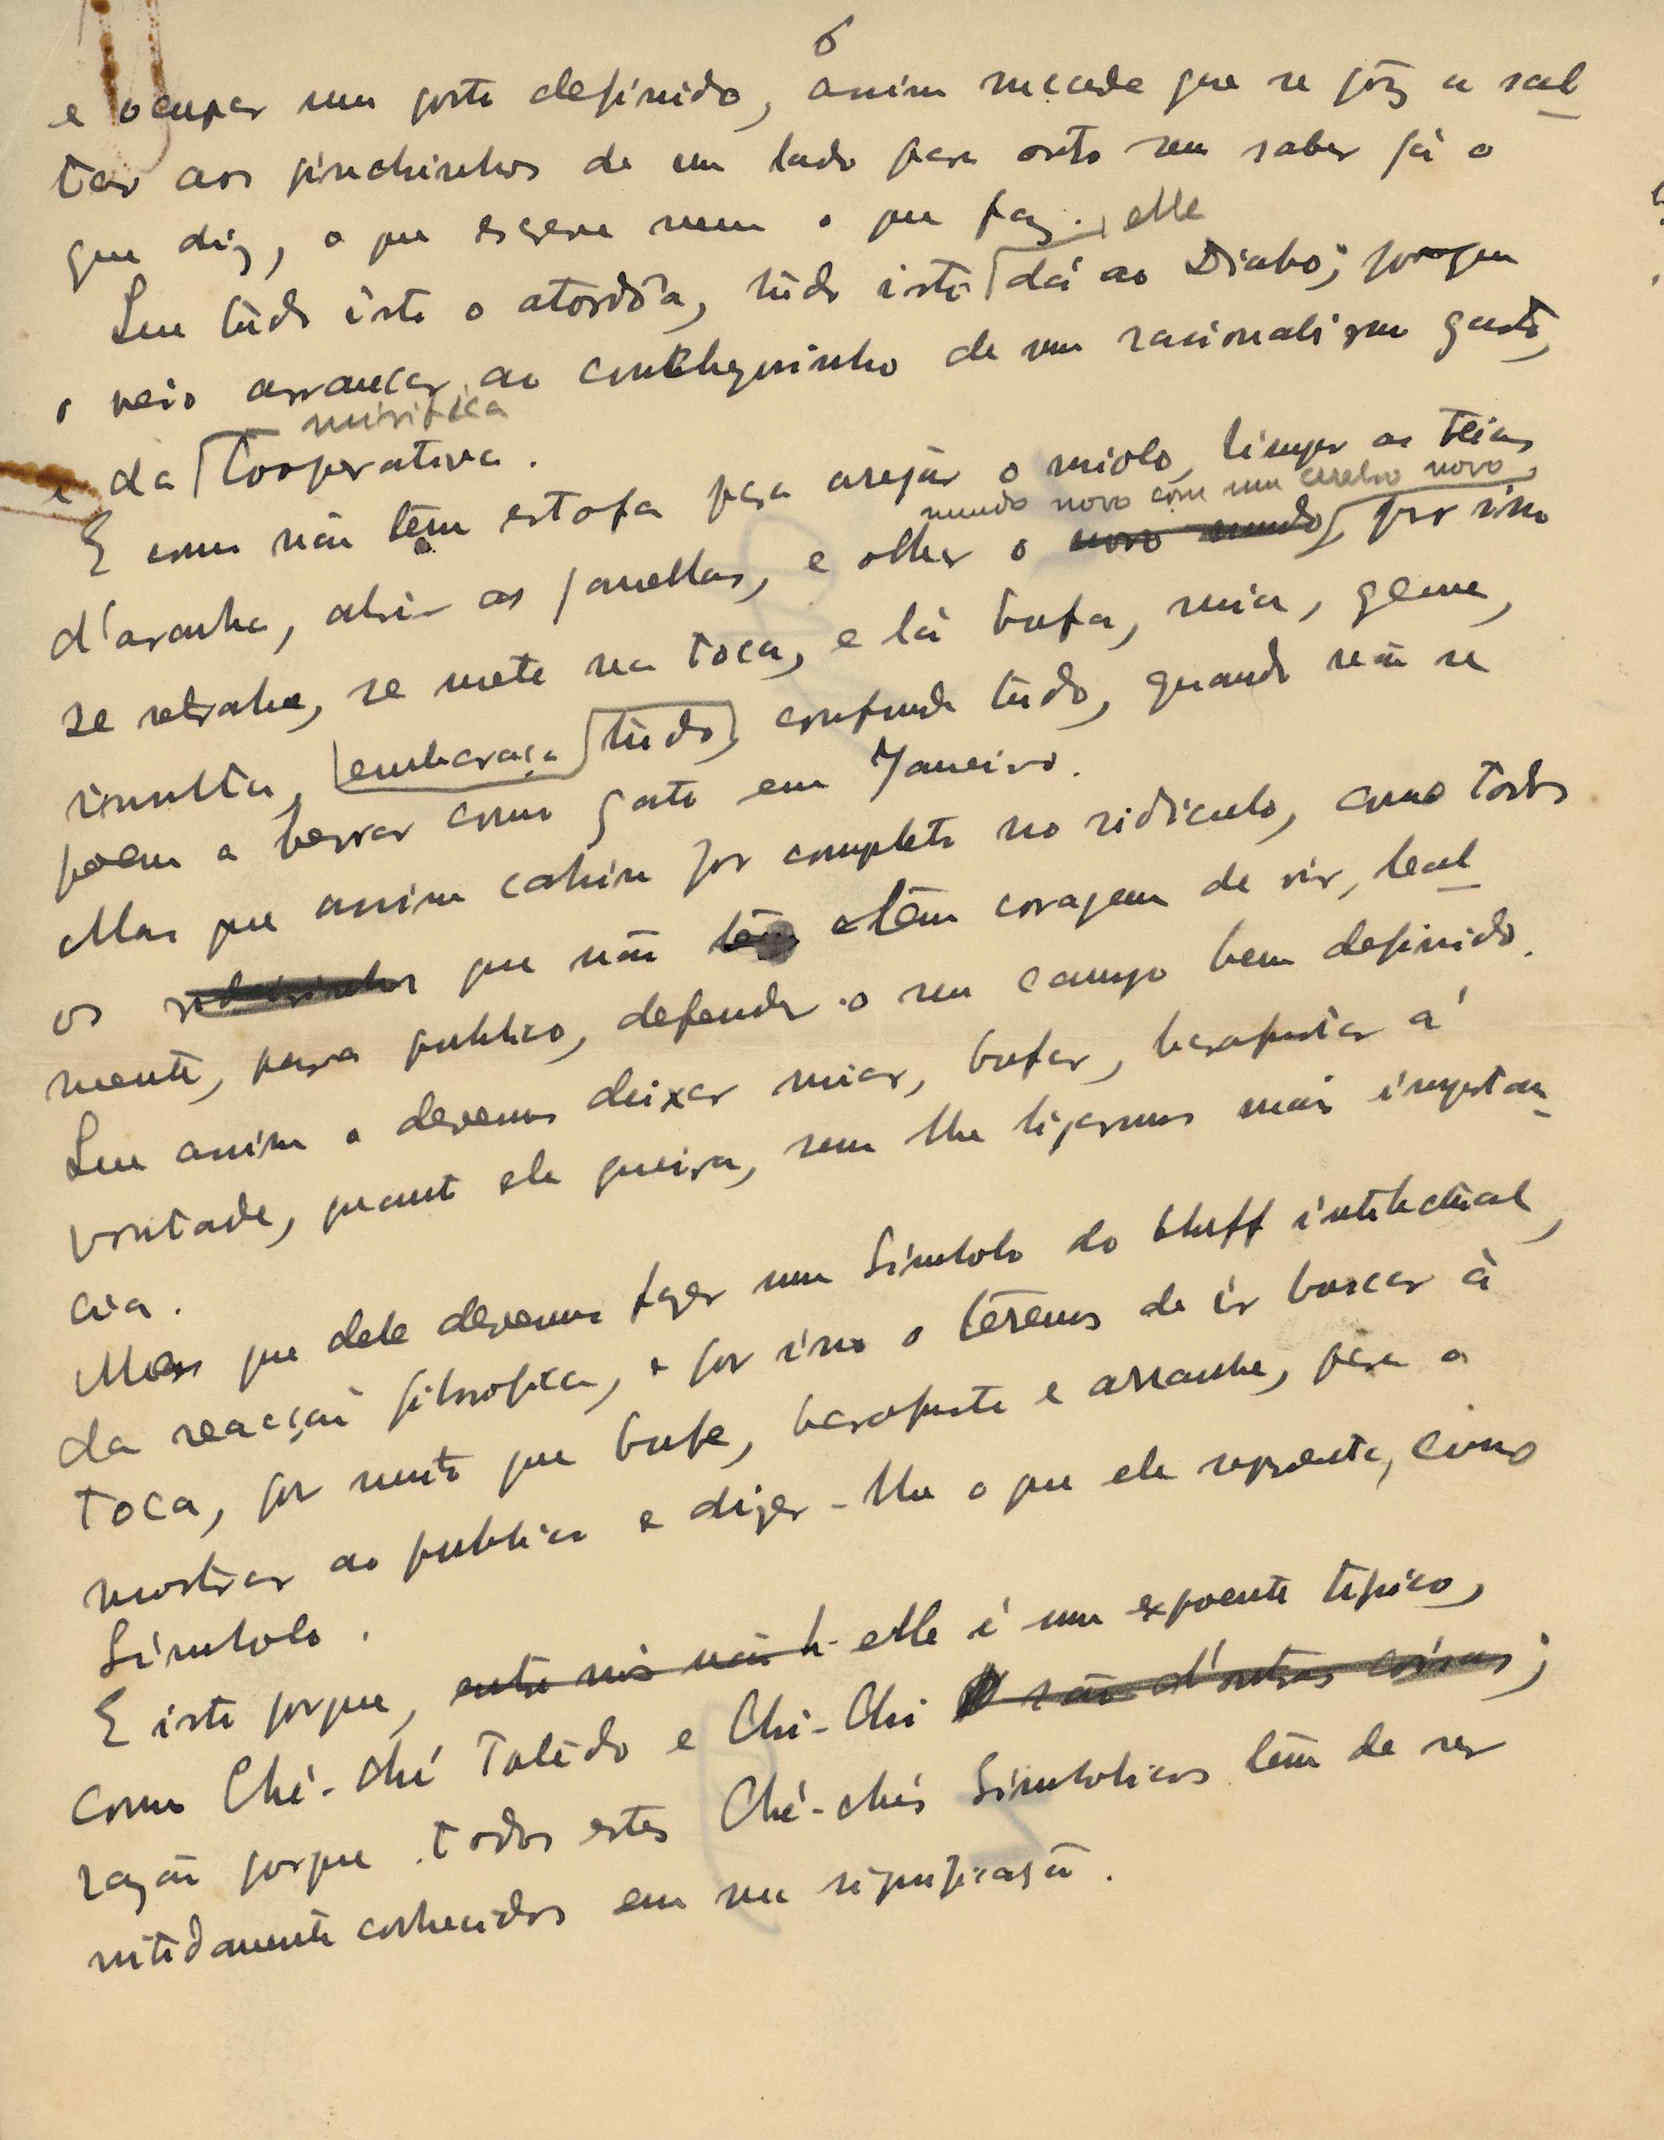 6
e ocupar um posto definido, assim sucede que se põz a sal
tar aos pinchinhos de um lado para outo sem saber já o
que diz, o que escreve nem o que faz.
Que tudo isto o atordôa, tudo isto elle dá ao Diabo; porque
o veio arrancar ao concheguinho de um racionalismo gasto,
e da mirifica Cooperativa.
E como não têm estofa para arejar o miolo, limpar as teias
d'aranha, abrir as janellas, e olhar o novo mundo mundo novo com um cerebro novo, por isso
se retrahe, se mete na toca, e lá bufa, mia, geme,
insulta, embaraça tudo, confunde tudo, quando não se
poem a berrar como gato em Janeiro.
Mas que assim cahiu por completo no ridiculo, como todos
os que não têm têm coragem de vir, leal
mente, para publico, defender o seu campo bem definido.
Que assim o devemos deixar miar, bufar, barafustar á
vontade, quanto ele queira, sem lhe ligarmos mais importan
cia.
Mas que dele devemos fazer um Símbolo do bluff intelectual,
da reacção filosofica, e por isso o teremos de ir buscar à
toca, por muito que bufe, barafuste e arranhe, para o
mostrar ao publico e dizer-lhe o que ele representa, como
Símbolo.
E isto porque, entre nós não h elle é um expoente tipico,
como Ché-ché Tolêdo e Chi-Chi são d'outras coisas;
razão porque todos estes Ché-chés Símbolicos têm de ser
nitidamente conhecidos em sua significação.